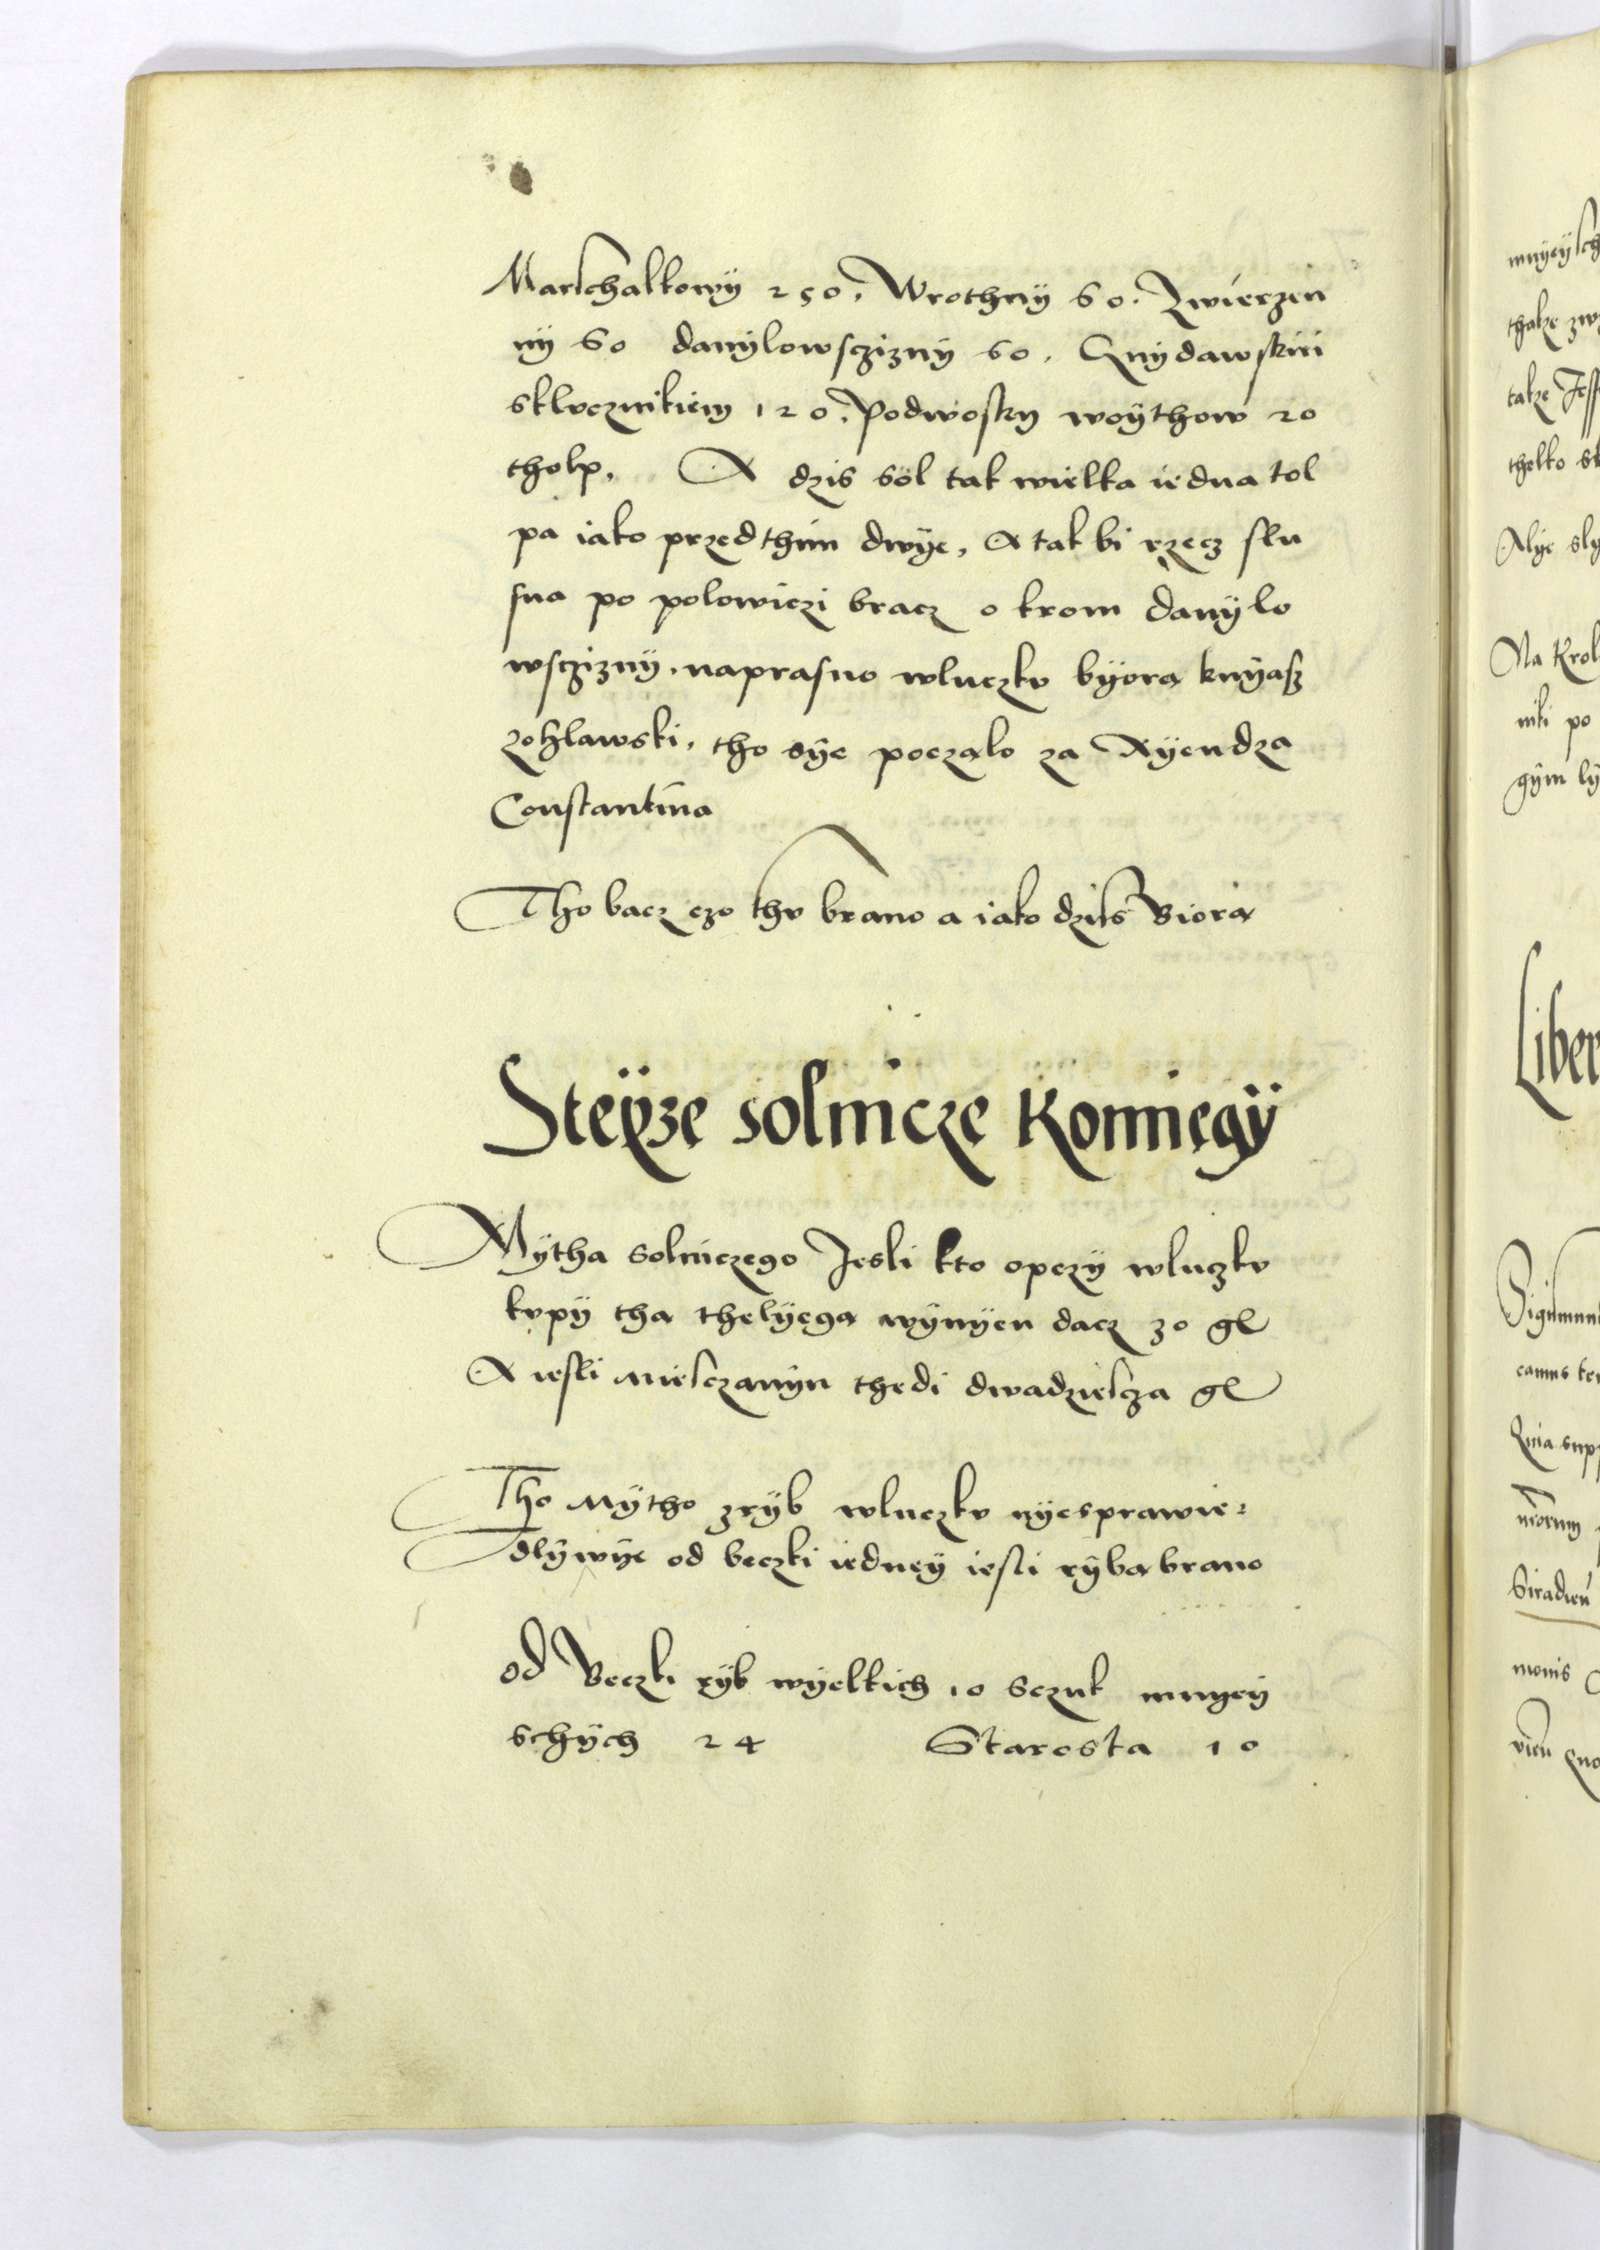 Marschalkowÿ 250. Wrothnÿ 60. Zwierzen
nÿ 60 danÿlowscziznÿ 60. Gnÿdawskiı
sklucznikiem 120. Podwoskÿ woÿthow 20
tholp. A dzis söl tak wielka iedna tol
pa iako przedthim dwÿe, A tak bi rzecz slu
sna po polowiczi bracz o krom danÿlo
wscziznÿ. naprasno wluczku bÿorą knÿasz
zohlawski. tho sÿe poczalo za Xÿendza
Constantina
Tho bacz czo thu brano a iako dzis Biorą
Steÿze solnicze Konniegÿ
Mÿtha solniczego Jesli kto opczÿ wluczku
kupÿ thą thelÿegą wÿnÿen dacz 30 gl
A iesli miesczanÿn thedi dwadziescza gl
Tho Mÿtho zrÿb wluczku nÿesprawie=
dlÿwÿe od beczki iedneÿ iesli rÿbą brano
od Beczki rÿb wÿelkich 10 sczuk mnÿeÿ
schÿch 24 Starosta 10
mnÿeÿsch
thakze
takze
thelko
Alÿe slÿ
Na Krol
niki po
gÿm lÿ
Liber
Sigismun
Quia supp
Siradien
monis